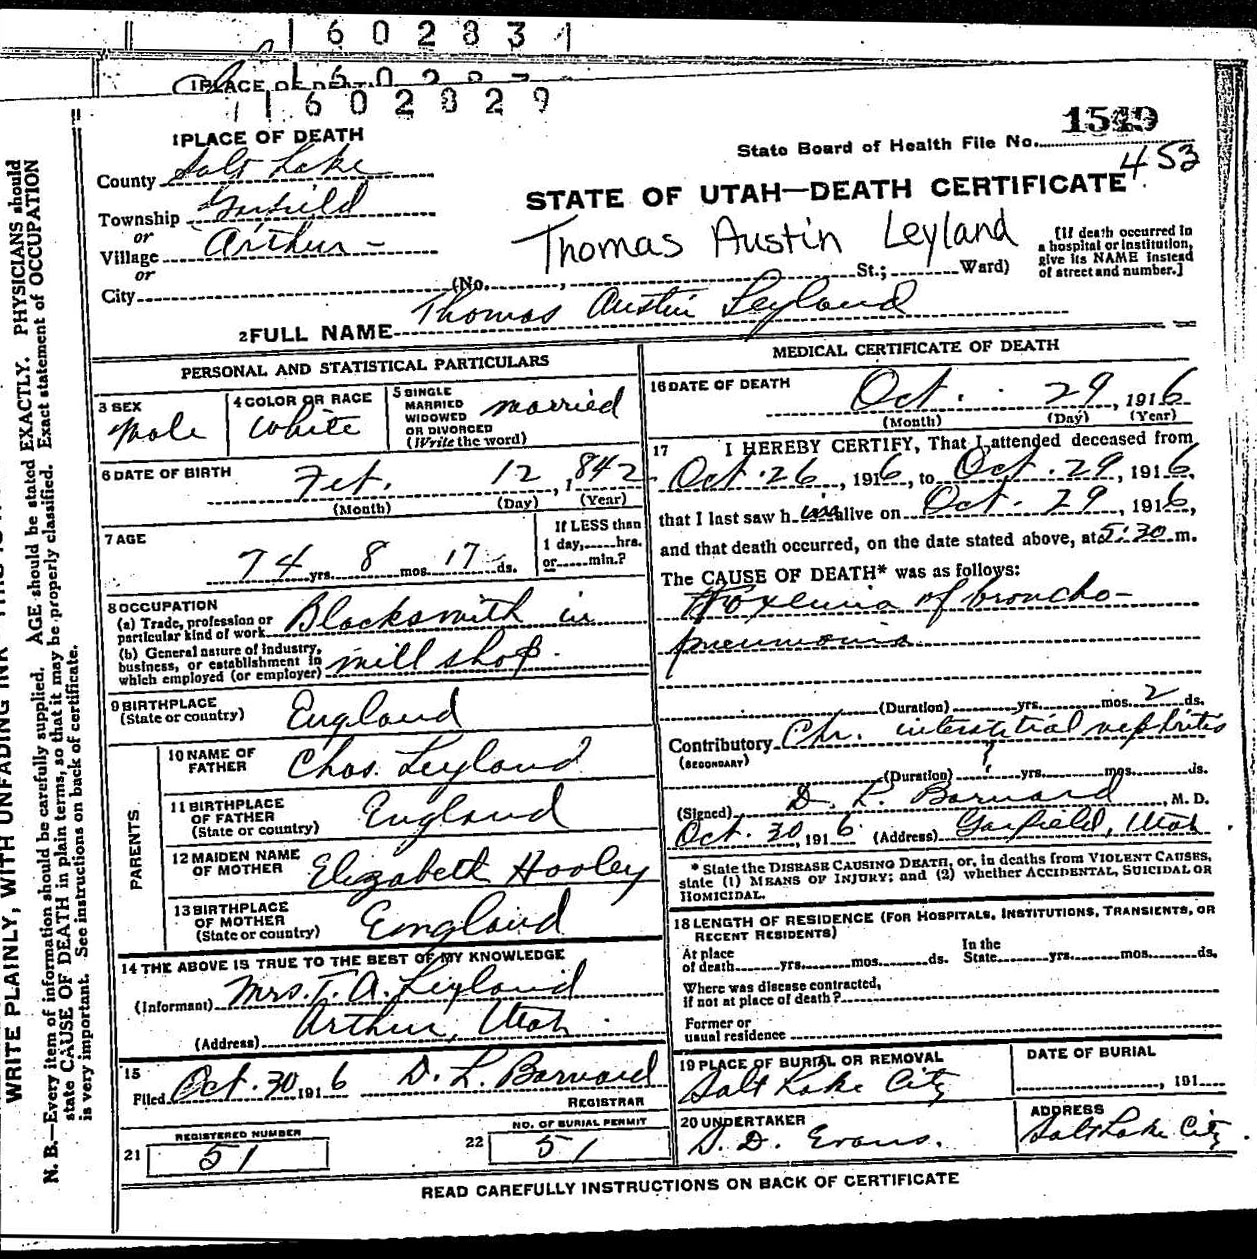 1 6 0 2 8 3 1
1PLACE OF DEATH
1 1 6 0 2 8 2 9
1PLACE OF DEATH
County Salt Lake
Township Garfield
or
Village Arthur -
or
City
1549
State Board of Health File No.
453
STATE OF UTAH—DEATH CERTIFICATE
Thomas Austin Leyland
(No. , St.; Ward)
[If death occurred in
a hospital or institution,
give its NAME instead
of street and number.]
2FULL NAME Thomas Austin Leyland
PERSONAL AND STATISTICAL PARTICULARS
3 SEX
Male
4 COLOR OR RACE
White
5 SINGLE
MARRIED
WIDOWED
OR DIVORCED
(Write the word)
married
6 DATE OF BIRTH
Feb. 12, 1842
(Month) (Day) (Year)
7 AGE
74 yrs. 8 mos. 17 ds.
If LESS than
1 day, hrs.
or min.?
8 OCCUPATION
(a) Trade, profession or
particular kind of work Blacksmith in
(b) General nature of industry,
business, or establishment in
which employed (or employer) mill shop.
9 BIRTHPLACE
(State or country) England
PARENTS
10 NAME OF
FATHER Chas. Leyland
11 BIRTHPLACE
OF FATHER
(State or country) England
12 MAIDEN NAME
OF MOTHER Elizabeth Hooley
13 BIRTHPLACE
OF MOTHER
(State or country) England
14 THE ABOVE IS TRUE TO THE BEST OF MY KNOWLEDGE
(Informant) Mrs. T. A. Leyland
(Address) Arthur, Utah.
15
Filed Oct. 30 1916 D. L. Barnard
REGISTRAR
REGISTERED NUMBER
21 51
NO. OF BURIAL PERMIT
22 51
MEDICAL CERTIFICATE OF DEATH
16 DATE OF DEATH
Oct. 29, 1916
(Month) (Day) (Year)
17 I HEREBY CERTIFY, That I attended deceased from
Oct. 26, 1916, to Oct. 29, 1916,
that I last saw him alive on Oct. 29, 1916,
and that death occurred, on the date stated above, at 5:30 m.
The CAUSE OF DEATH* was as follows:
Toxemia of broncho-
pneumonia
(Duration) yrs. mos. 2 ds.
Contributory Chr. interstitial nephritis
(SECONDARY)
(Duration) ? yrs. mos. ds.
(Signed) D. L. Barnard, M. D.
Oct. 30, 1916 (Address) Garfield, Utah.
* State the DISEASE CAUSING DEATH, or, in deaths from VIOLENT CAUSES,
state (1) MEANS OF INJURY; and (2) whether ACCIDENTAL, SUICIDAL OR
HOMICIDAL.
18 LENGTH OF RESIDENCE (FOR HOSPITALS, INSTITUTIONS, TRANSIENTS, OR
RECENT RESIDENTS)
At place
of death yrs. mos. ds.
In the
State yrs. mos. ds.
Where was disease contracted,
if not at place of death?
Former or
usual residence
19 PLACE OF BURIAL OR REMOVAL
Salt Lake City
DATE OF BURIAL
, 191
20 UNDERTAKER
S. D. Evans.
ADDRESS
Salt Lake City.
READ CAREFULLY INSTRUCTIONS ON BACK OF CERTIFICATE
WRITE PLAINLY, WITH UNFADING INK
N. B.—Every item of information should be carefully supplied. AGE should be stated EXACTLY. PHYSICIANS should
state CAUSE OF DEATH in plain terms, so that it may be properly classified. Exact statement of OCCUPATION
is very important. See instructions on back of certificate.